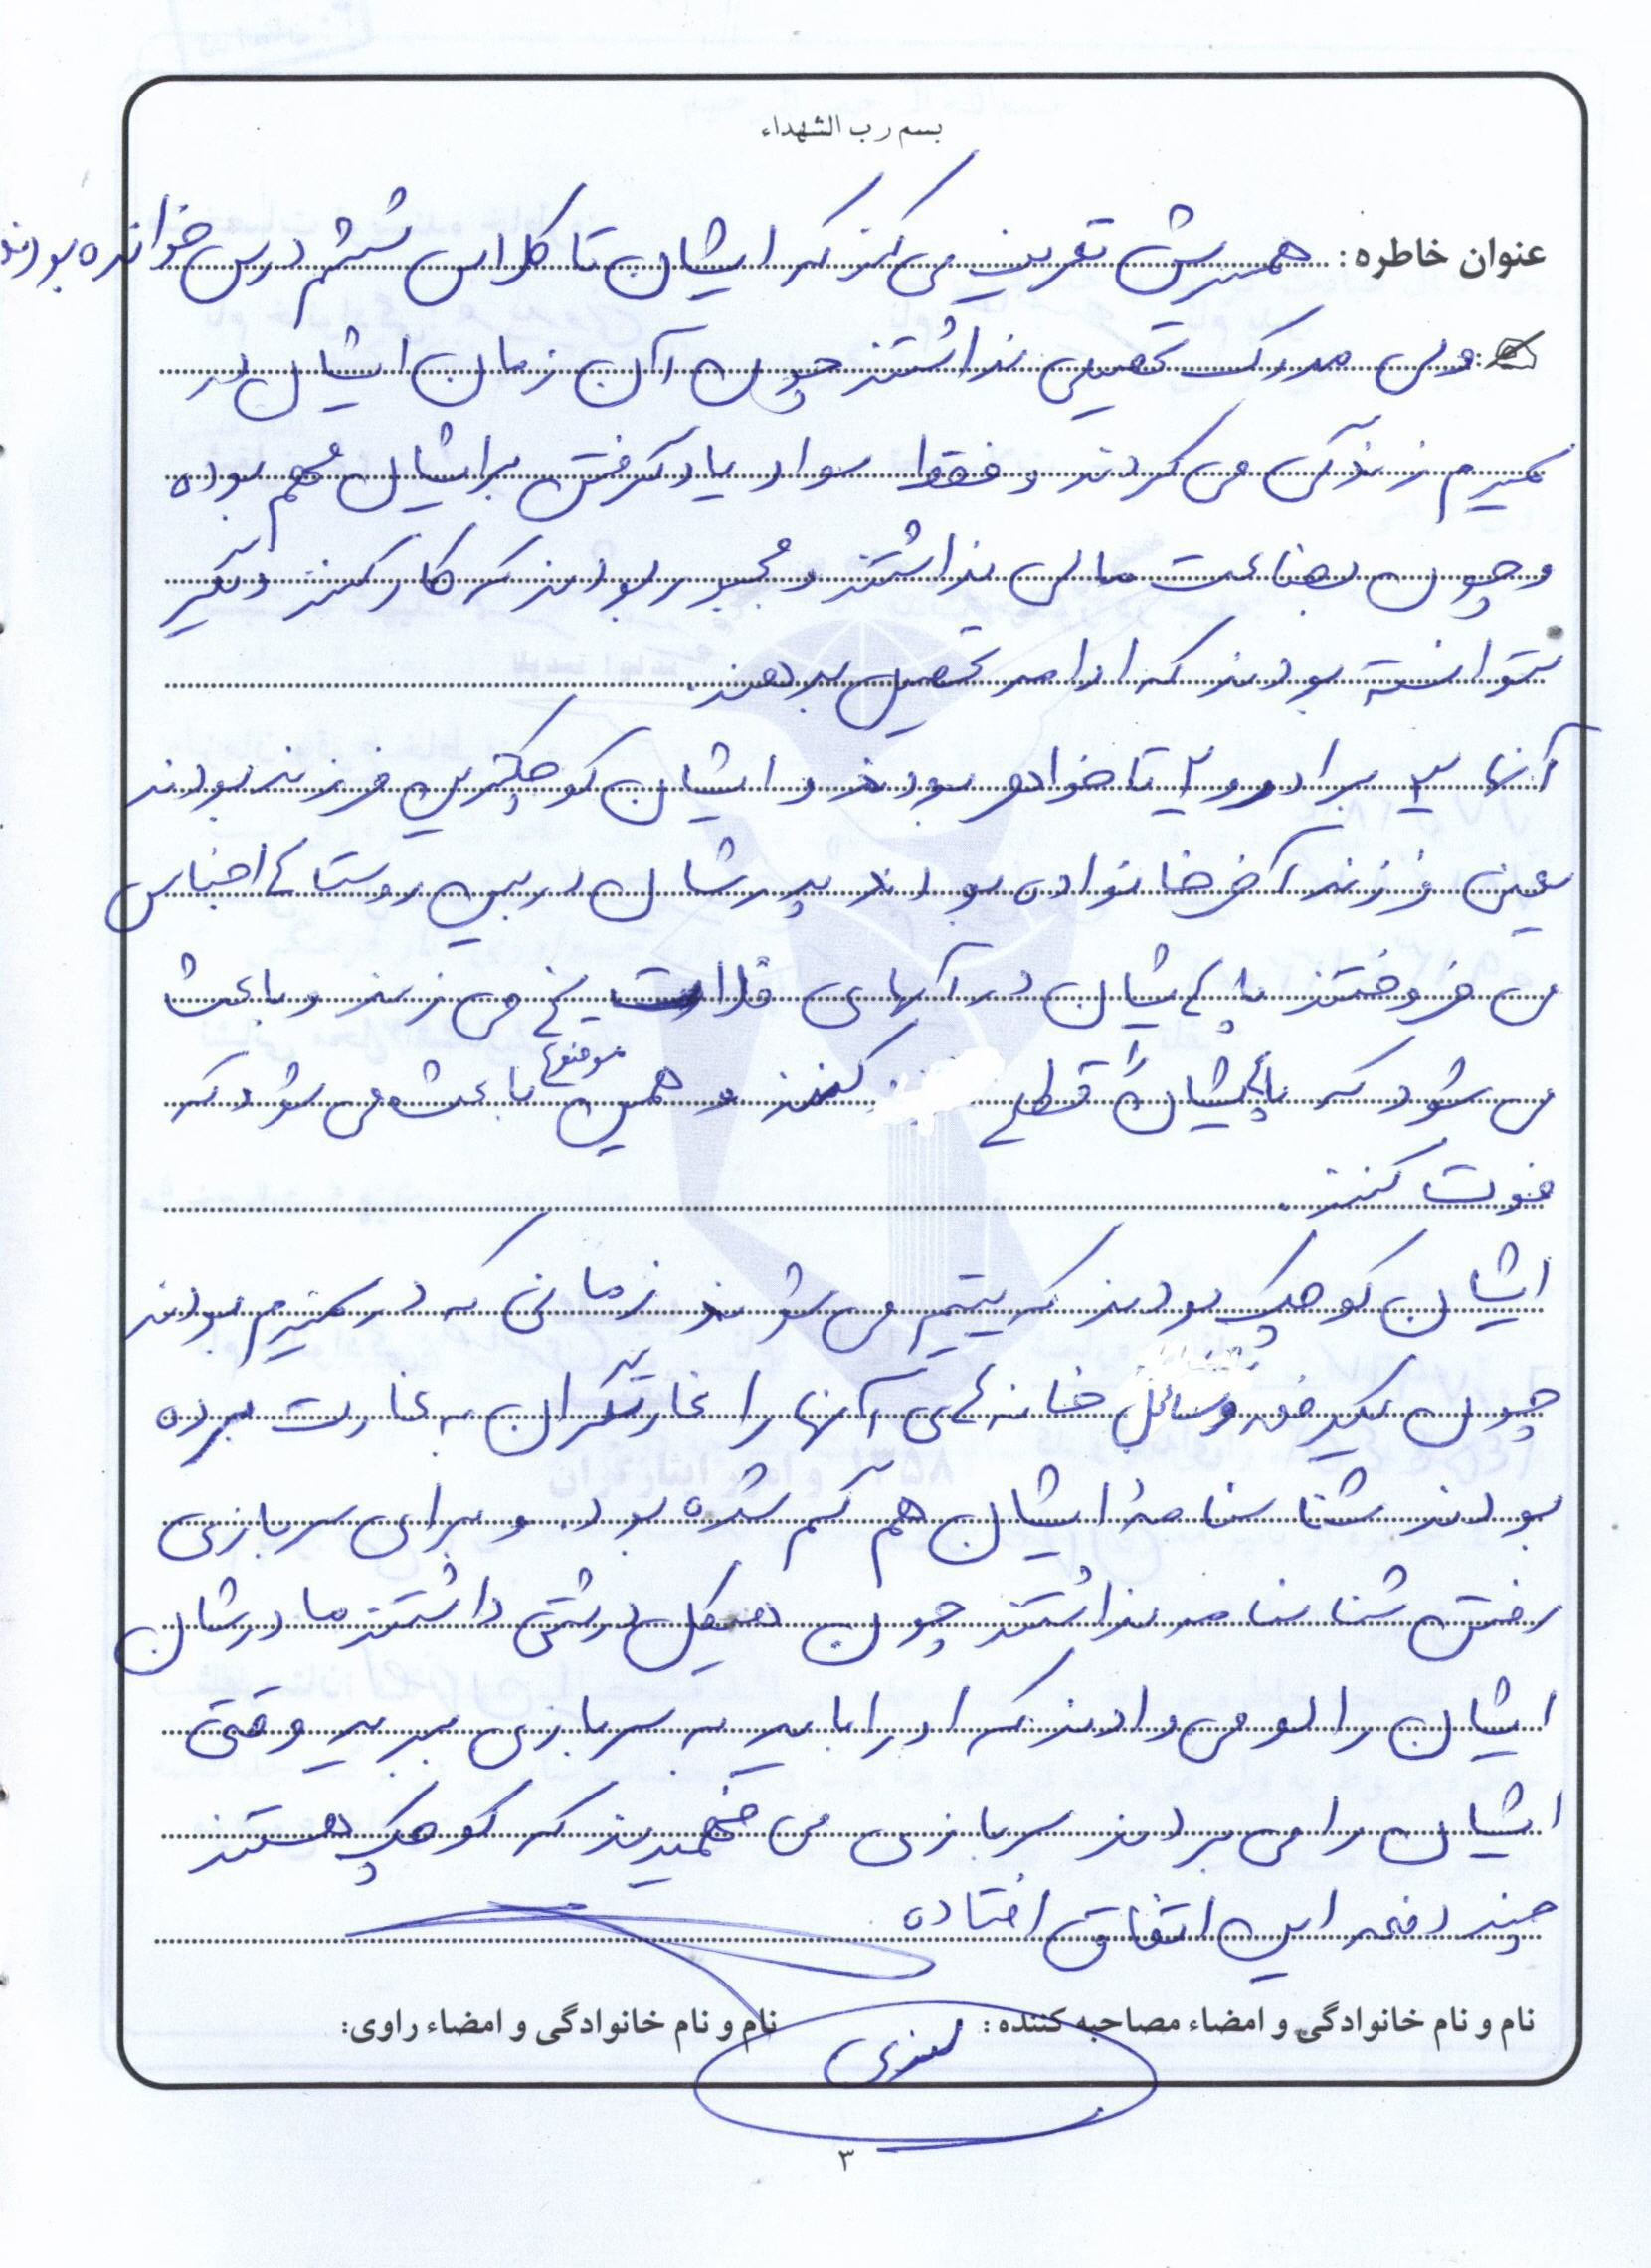 بسم رب الشهداء
عنوان خاطره: همسرش تعریف می کند که ایشان تا کلاس ششم درس خوانده بودند
ولی مدرک تحصیلی نداشتند چون آن زمان ایشان در
کمیرم زندگی می کردند و فقط سواد یاد گرفتن برایشان مهم بوده
و چون بضاعت مالی نداشتند و مجبور بودند که کار کنند دیگر
نتوانسته بودند که ادامه تحصیل بدهند.
آنها ۳ برادر و ۲ تا خواهر بودند و ایشان کوچکترین فرزند بودند
یعنی فرزند آخر خانواده بودند پدرشان در بین روستاها اجناس
می فروختند پاهایشان در آبهای قنات یخ می زند و باعث
می شود که پاهایشان را قطع کنند و همین موضوع باعث می شود که
فوت کنند.
ایشان کوچک بودند که یتیم می شوند زمانی که در کمیرم بودند
چون یکدفعه وسائل خانه های آنها را غارتگران به غارت برده
بودند شناسنامهٔ ایشان هم گم شده بود. و برای سربازی
رفتن شناسنامه نداشتند چون هیکل درشتی داشتند مادرشان
ایشان را لو می دادند که او را باید به سربازی ببرید وقتی
ایشان را می بردند سربازی می فهمیدند که کوچک هستند
چند دفعه این اتفاق افتاده
نام و نام خانوادگی و امضاء مصاحبه کننده:
نام و نام خانوادگی و امضاء راوی:
۳